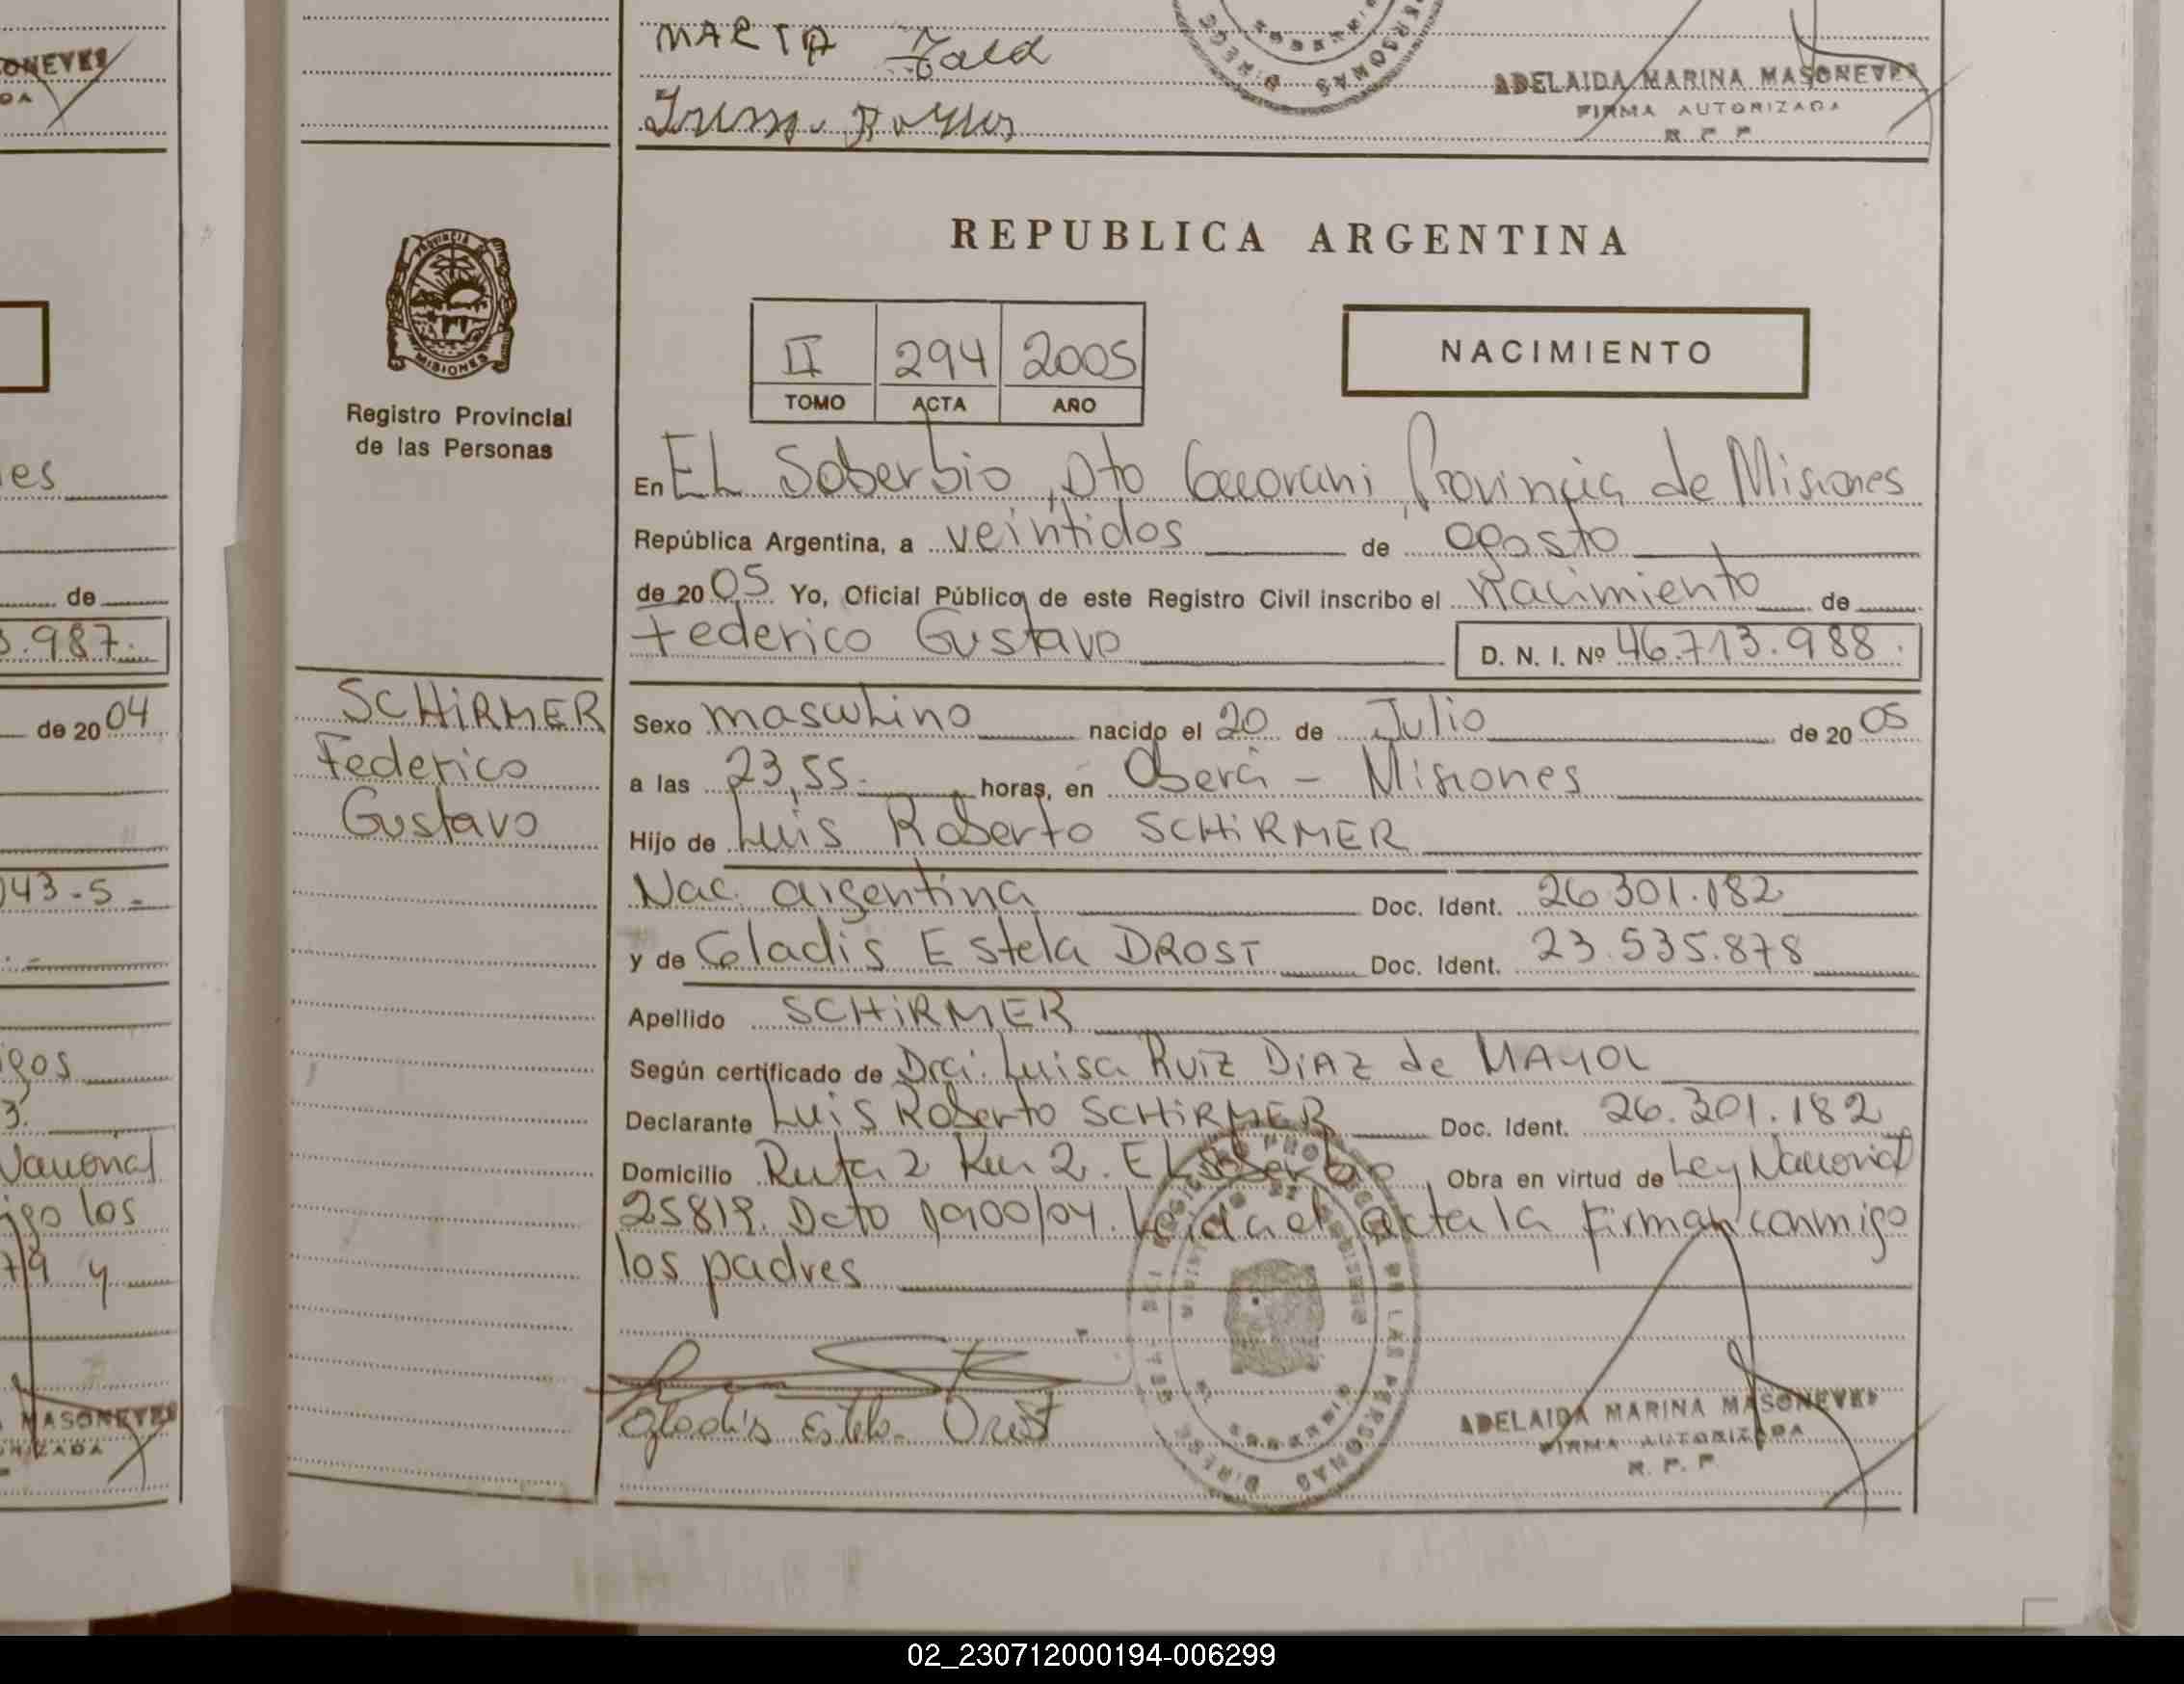 MARTA
ADELAIDA MARINA MASONEVES
FIRMA AUTORIZADA
R. P. P.
ONEVES
DA
es
de
3.987.
de 20 04
043-5-
igos
3.
Nacional
igo los
79 y
MASONEVES
PROVINCIA
MISIONES
Registro Provincial
de las Personas
SCHiRMER
Federico
Gustavo
REPUBLICA ARGENTINA
II 294 2005
TOMO ACTA AÑO
NACIMIENTO
En EL Soberbio, Dto Guarani, Provincia de Misiones
República Argentina, a veintidos de agosto
de 20 05 Yo, Oficial Público de este Registro Civil inscribo el Nacimiento de
Federico Gustavo D. N. I. Nº 46.713.988.
Sexo masculino nacido el 20 de Julio de 20 05
a las 23,55. horas, en Oberá - Misiones
Hijo de Luis Roberto SCHiRMER
Nac. argentina Doc. Ident. 26 301.182
y de Gladis Estela DROST Doc. Ident. 23.535.878
Apellido SCHiRMER
Según certificado de Dra. Luisa Ruiz DiAZ de MAYOL
Declarante Luis Roberto SCHiRMER Doc. Ident. 26.301.182
Domicilio Ruta 2 Km 2. EL Soberbio Obra en virtud de Ley Nacional
25819. Dcto 1900/04. Leida el acta la firman conmigo
los padres
Gladis Estela Drost
ADELAIDA MARINA MASONEVES
FIRMA AUTORIZADA
R. P. P.
02_230712000194-006299